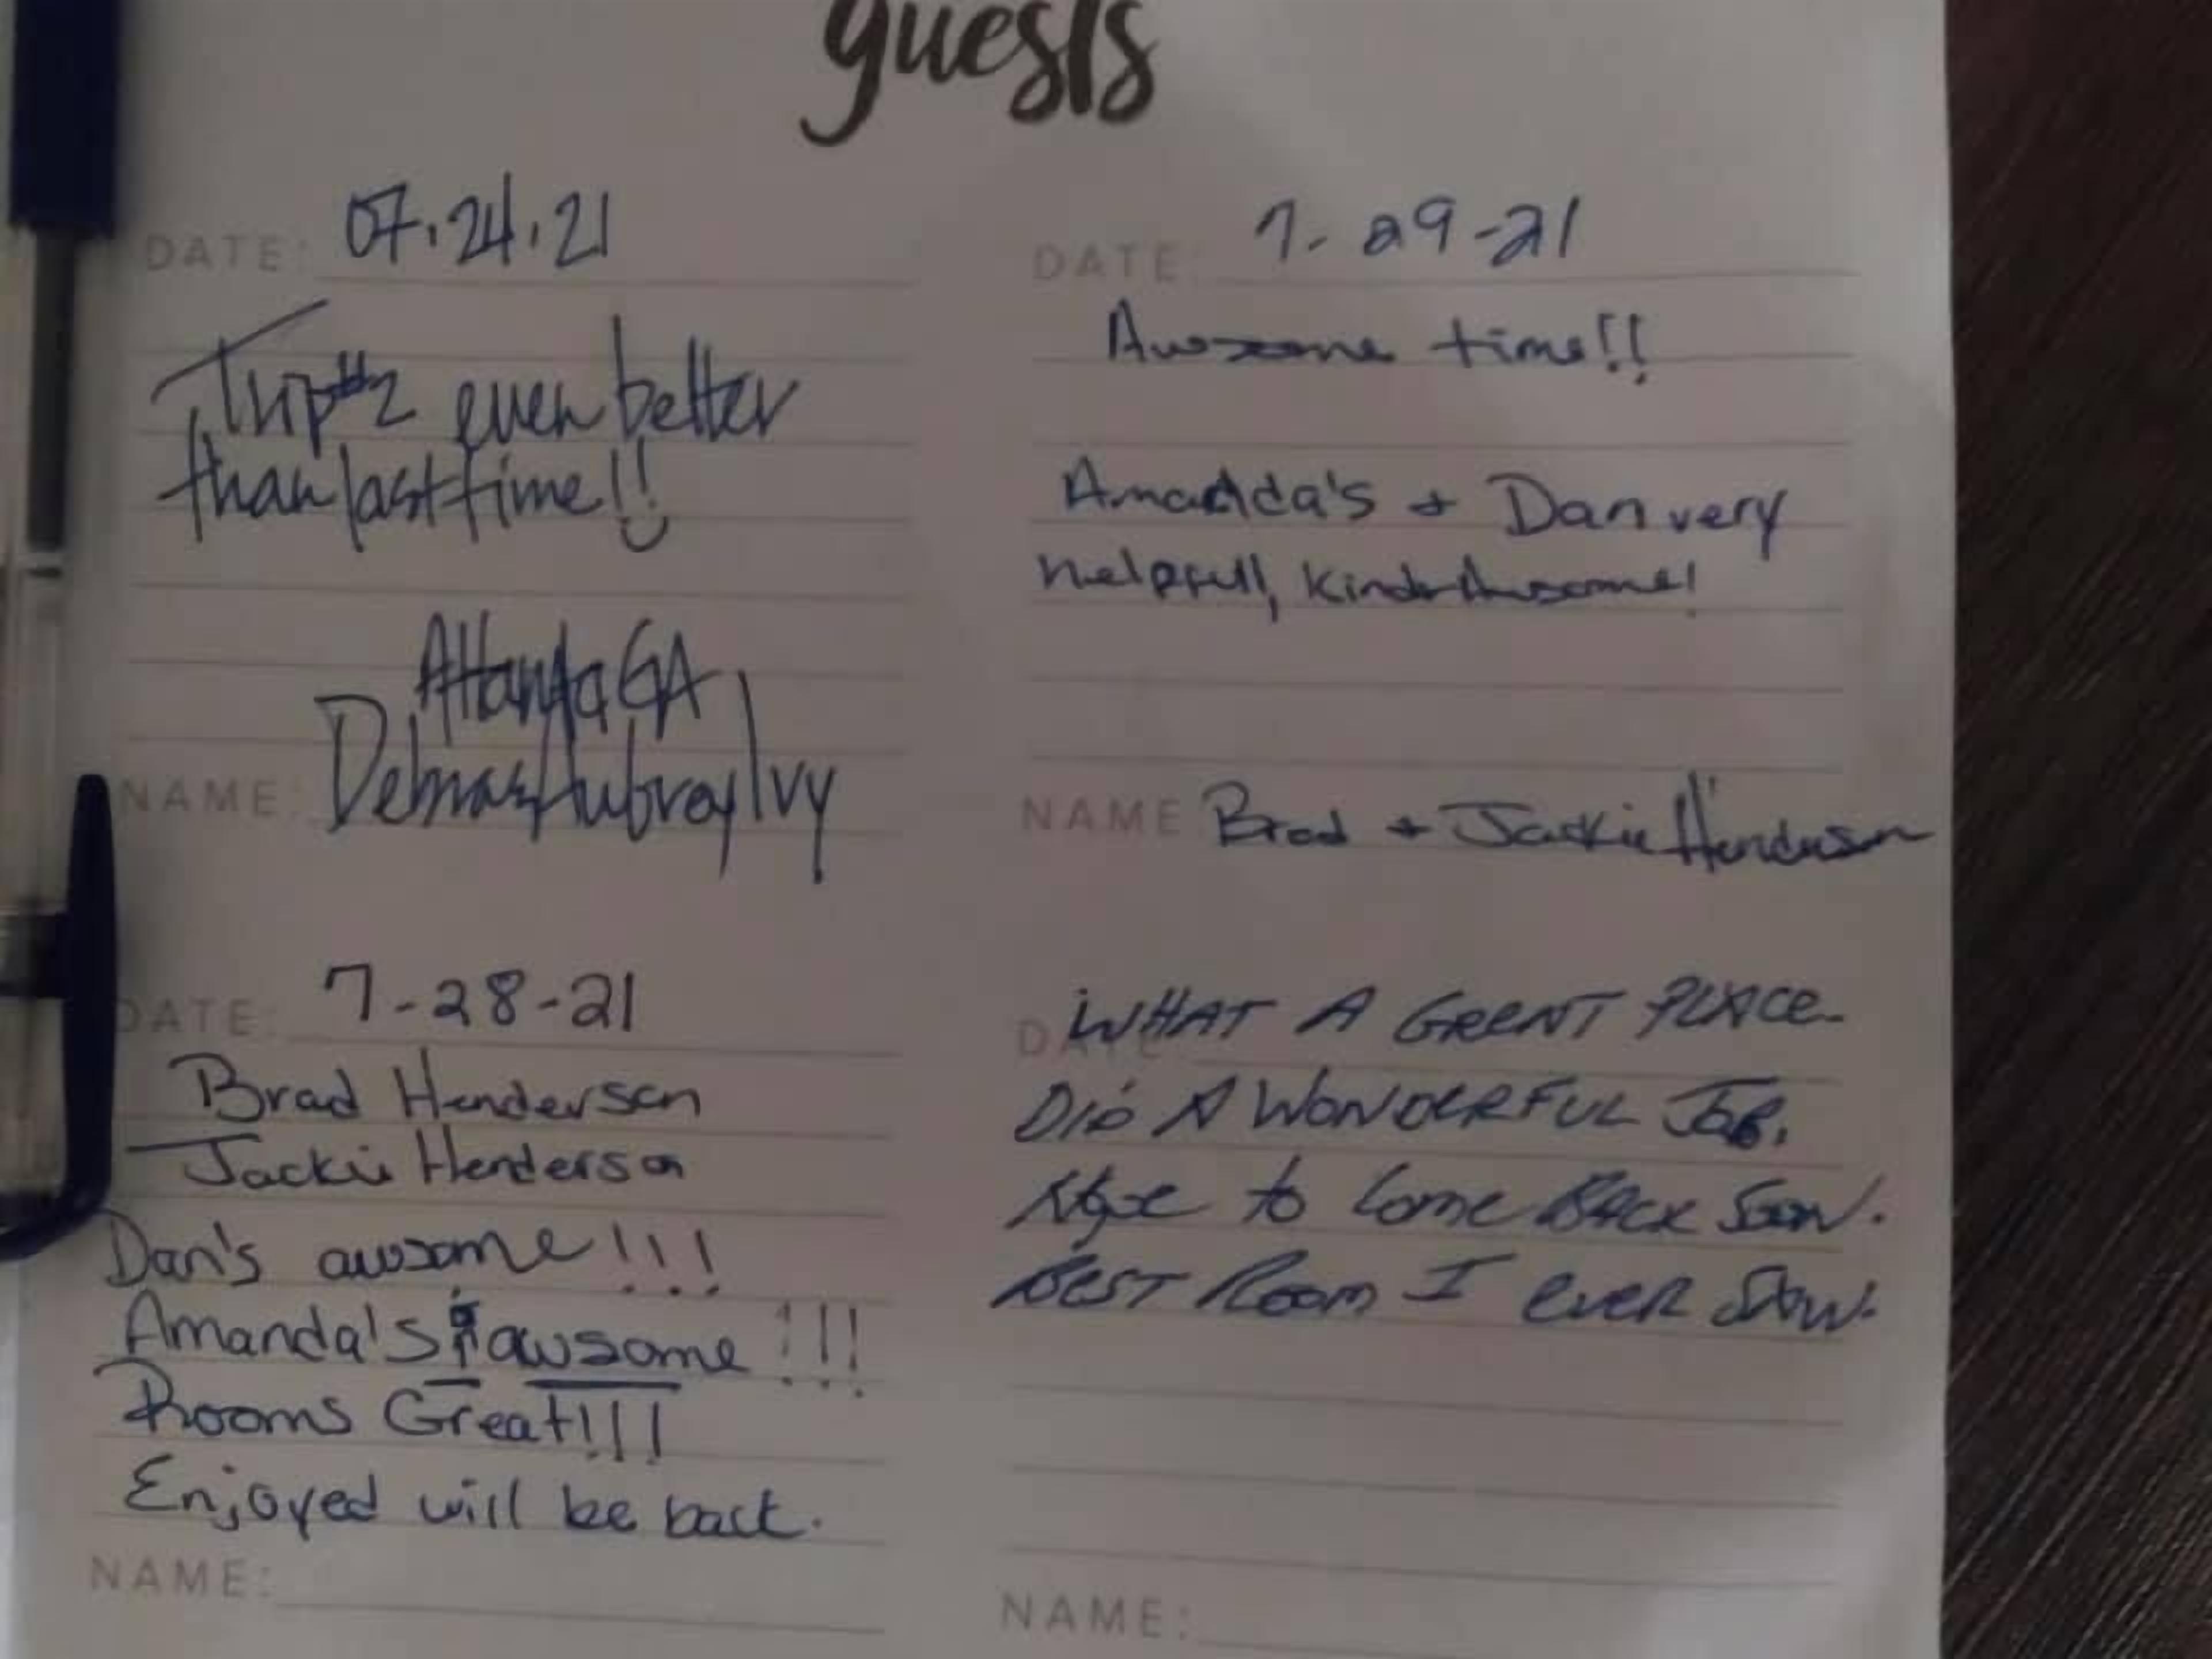 guests
DATE: 07.24.21
Trip #2 even better
than last time!!
Atlanta GA
NAME: Delmas Aubrey Ivy
DATE: 7-28-21
Brad Henderson
Jackie Henderson
Dan's awsome!!!
Amanda's awsome!!!
Rooms Great!!!
Enjoyed will be back.
NAME:
DATE: 7-29-21
Awsome time!!
Amandda's + Dan very
helpfull, kind + Awsome!
NAME Brad + Jackie Henderson
DATE
WHAT A GREAT PLACE.
DID A WONDERFUL JOB.
Hope to Come BACK Soon.
BEST Room I ever SAW.
NAME: